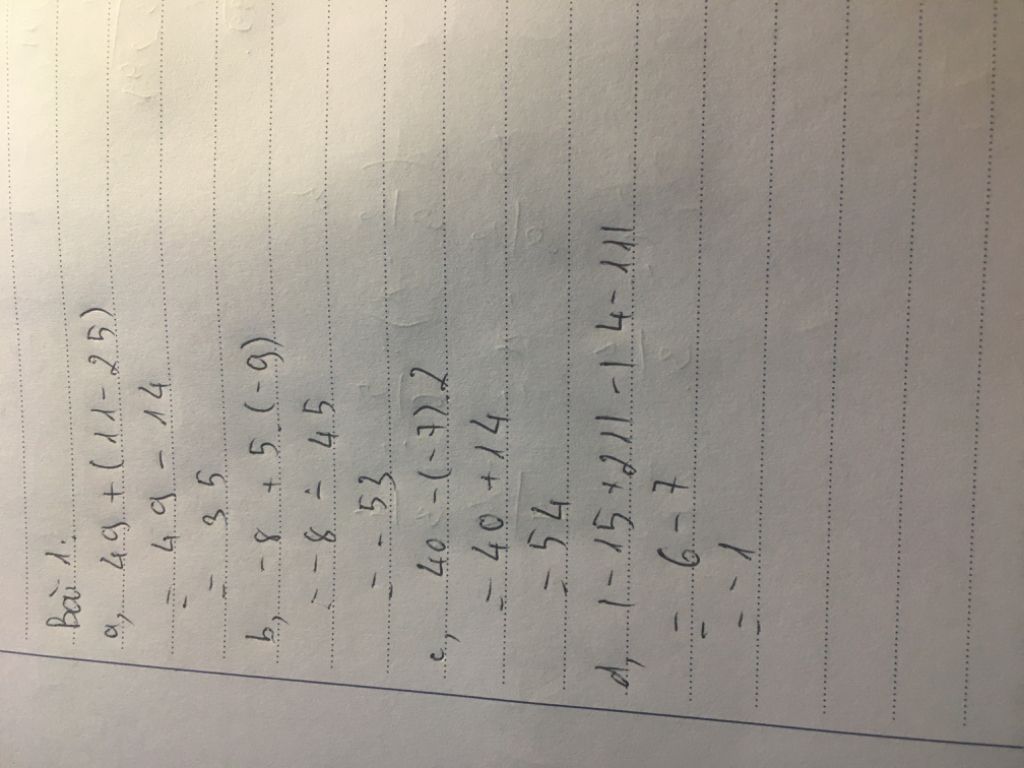 Bài 1:
a, 49 + (11 - 25)
= 49 - 14
= 35
b, -8 + 5.(-9)
= -8 - 45
= -53
c, 40 - (-7).2
= 40 + 14
= 54
d, |-15+21|-|4-11|
= 6 - 7
= -1